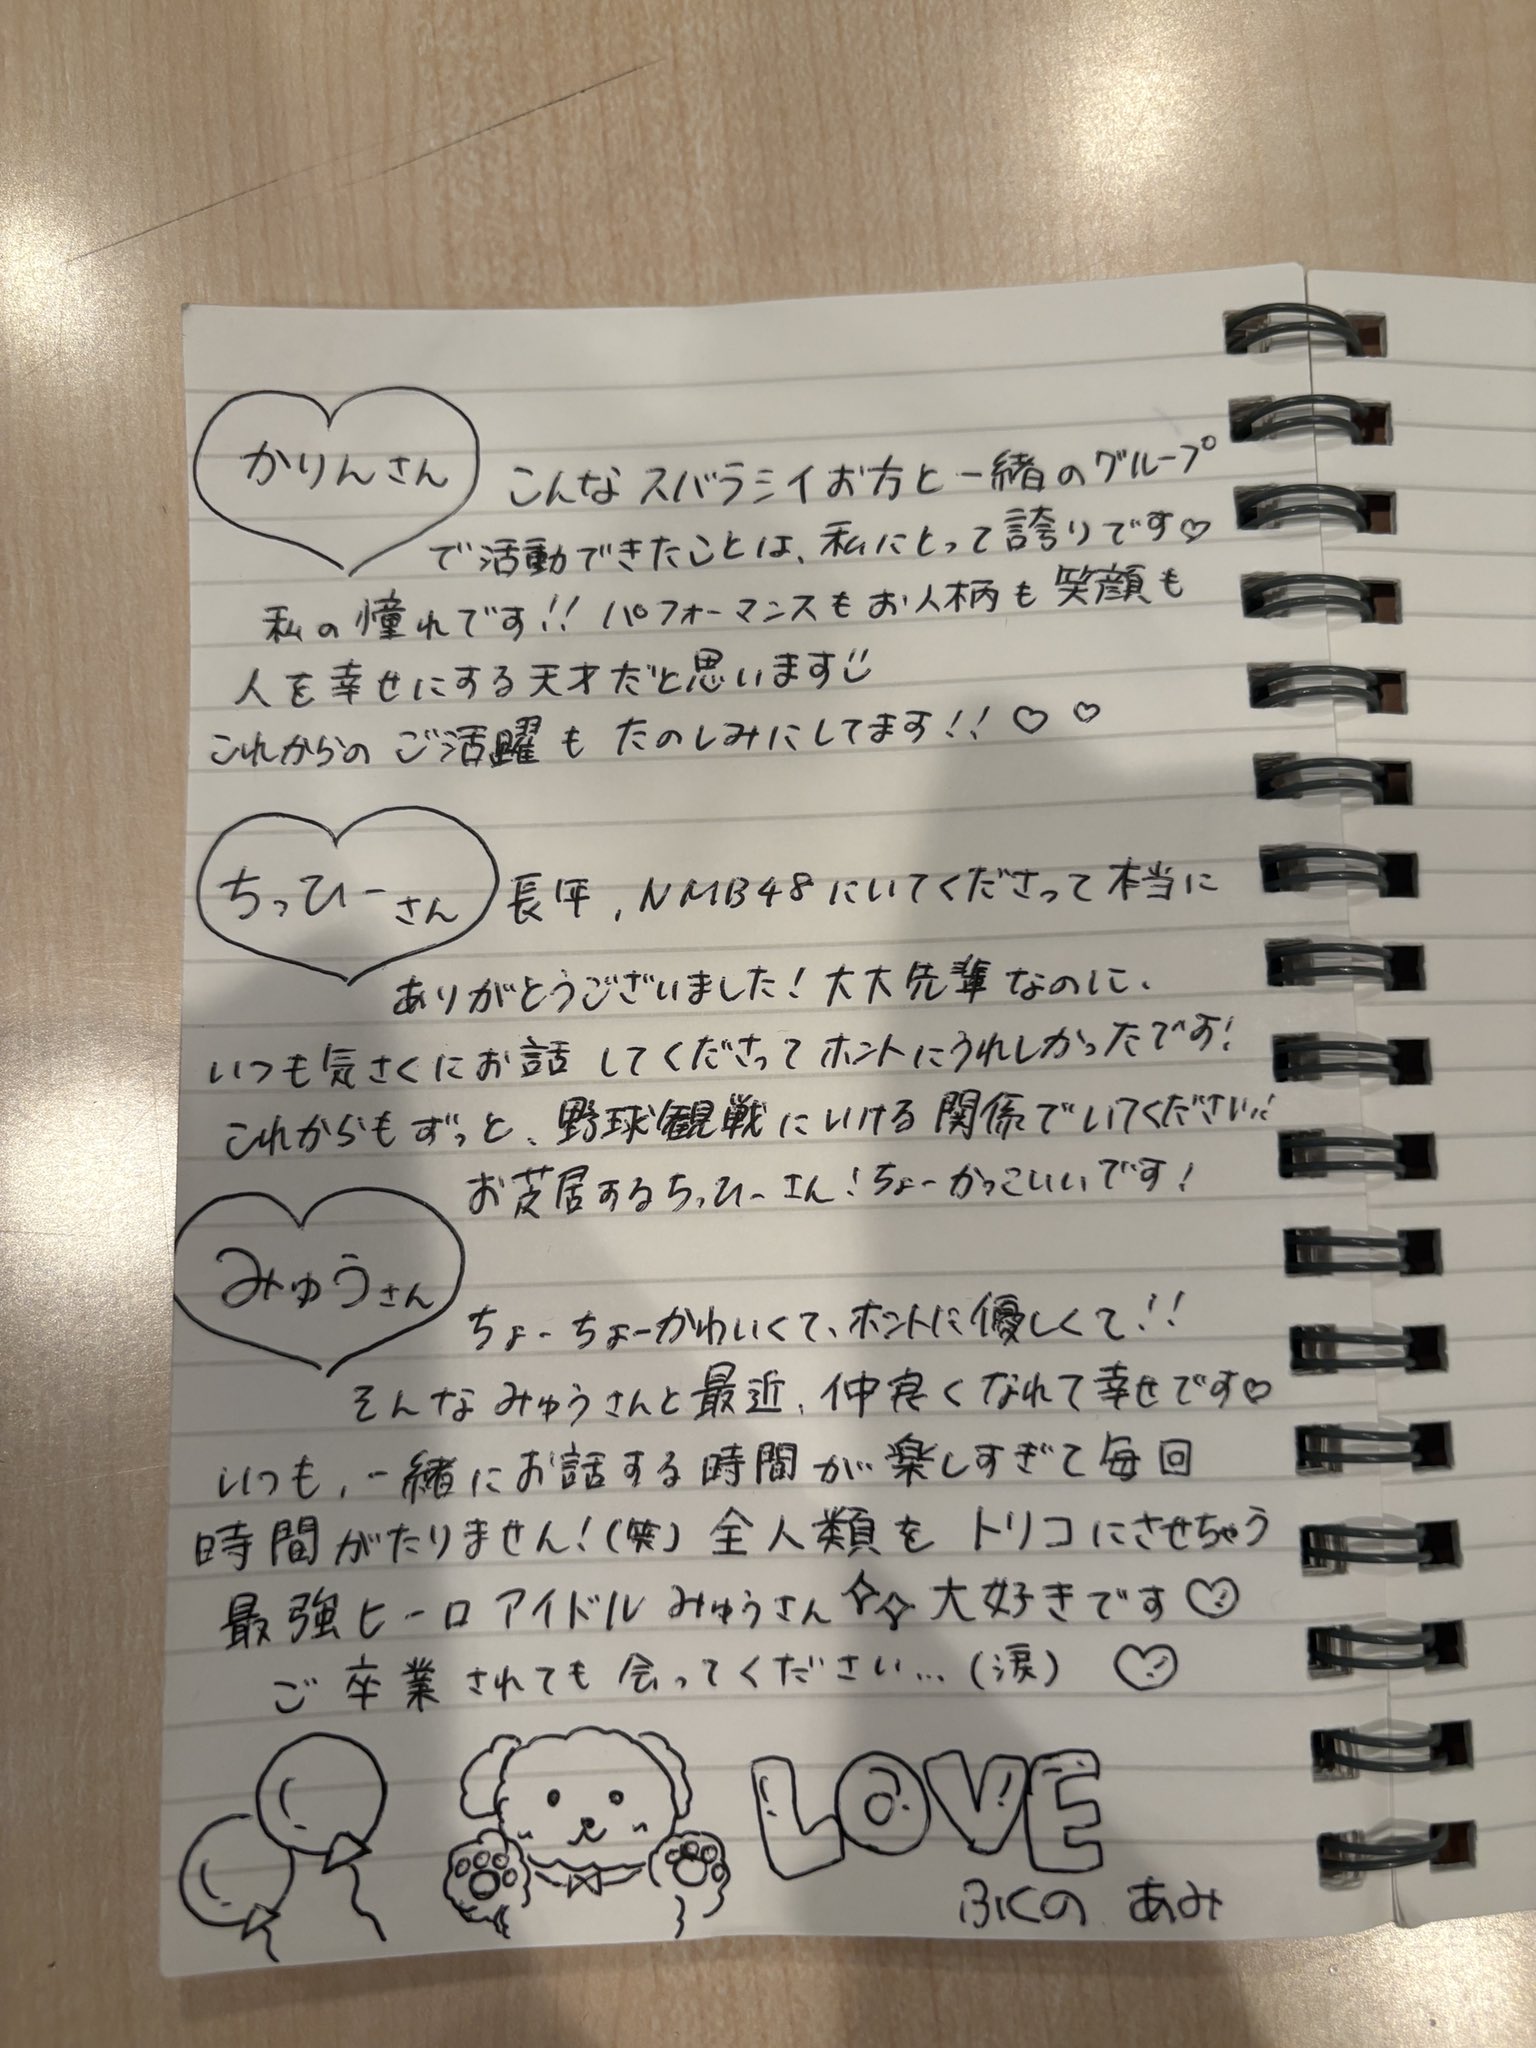 かりんさん
こんなスバラシイお方と一緒のグループ
で活動できたことは、私にとって誇りです♡
私の憧れです!! パフォーマンスもお人柄も笑顔も
人を幸せにする天才だと思います
これからのご活躍もたのしみにしてます!! ♡ ♡
ちっひーさん
長年、NMB48にいてくださって本当に
ありがとうございました!大大先輩なのに、
いつも気さくにお話してくださってホントにうれしかったです!
これからもずっと、野球観戦にいける関係でいてください!!
お芝居するちっひーさん!ちょーかっこいいです!
みゅうさん
ちょーちょーかわいくて、ホントに優しくて!!
そんなみゅうさんと最近、仲良くなれて幸せです♡
いつも、一緒にお話する時間が楽しすぎて毎回
時間がたりません!(笑) 全人類をトリコにさせちゃう
最強ヒーローアイドルみゅうさん✧✧大好きです♡
ご卒業されても会ってください…(涙) ♡
LOVE
ふくの あみ